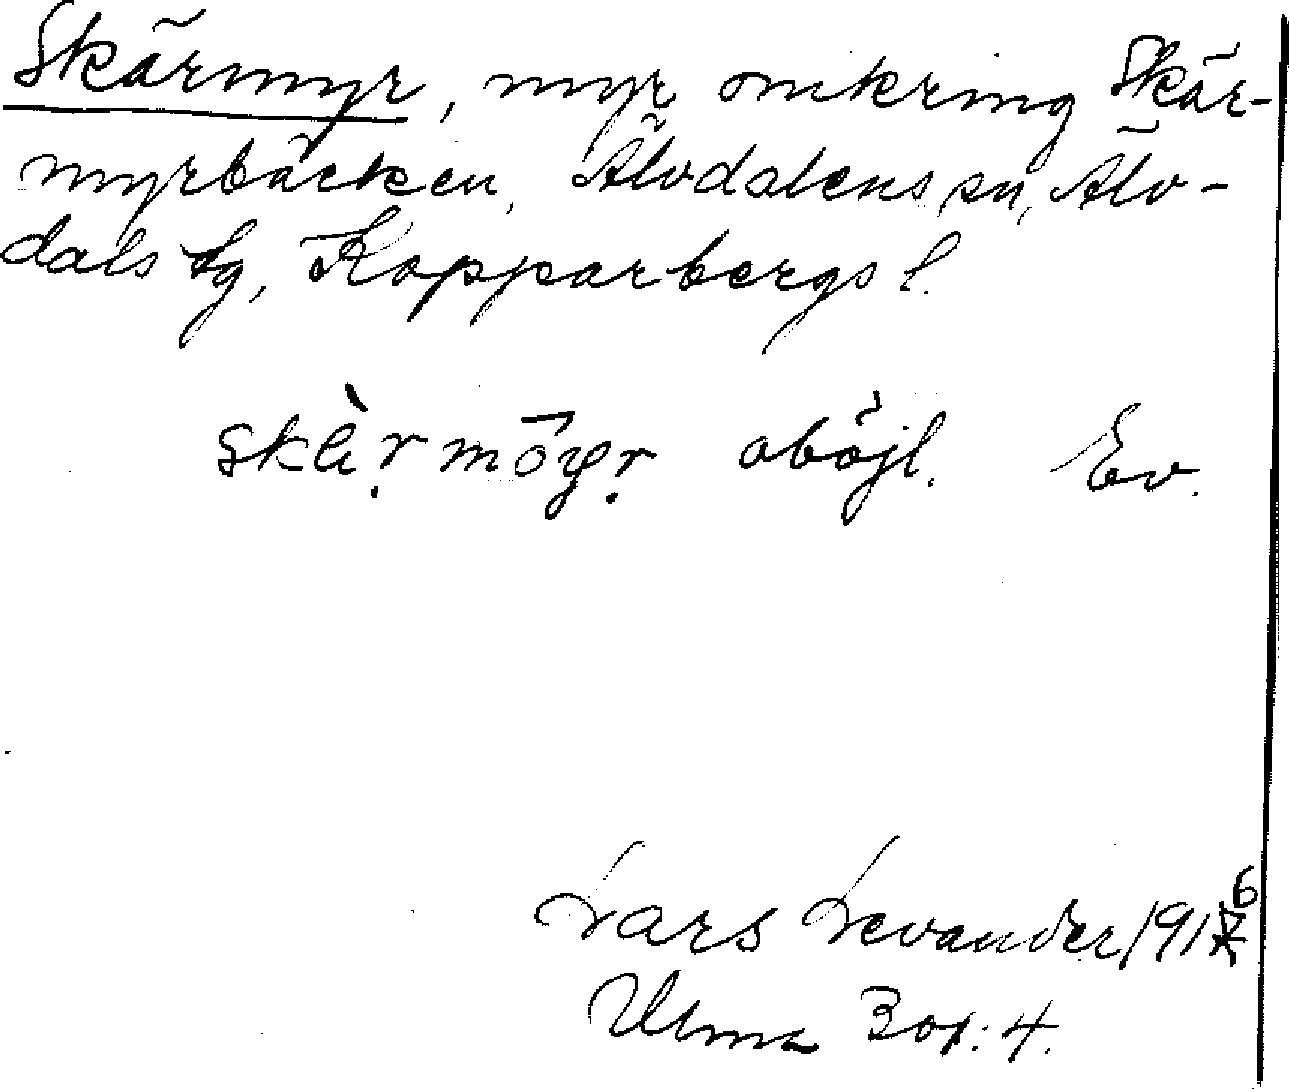 Skärmyr, myr omkring Skär-
myrbäcken, Älvdalens sn, Älv-
dals tg, Kopparbergs l.
skàr̥mȫyr̥ oböjl. Ev.
Lars Levander 1916
Ulma 301:4.